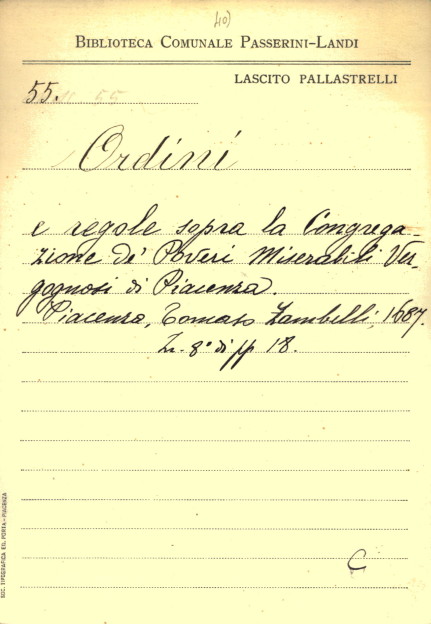 40)
BIBLIOTECA COMUNALE PASSERINI-LANDI
LASCITO PALLASTRELLI
55. 55
Ordini
e regole sopra la Congrega-
zione de' Poveri Miserabili Ver-
gognosi di Piacenza.
Piacenza, Tomaso Zambelli, 1687.
In-8° di pp 18.
C
SOC. TIPOGRAFICA ED. PORTA - PIACENZA